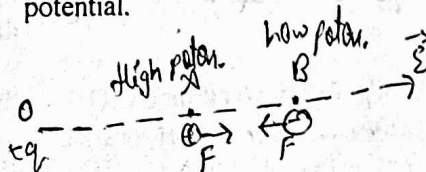 potential.
High poten. Low poten.
A B E
O
+q F F